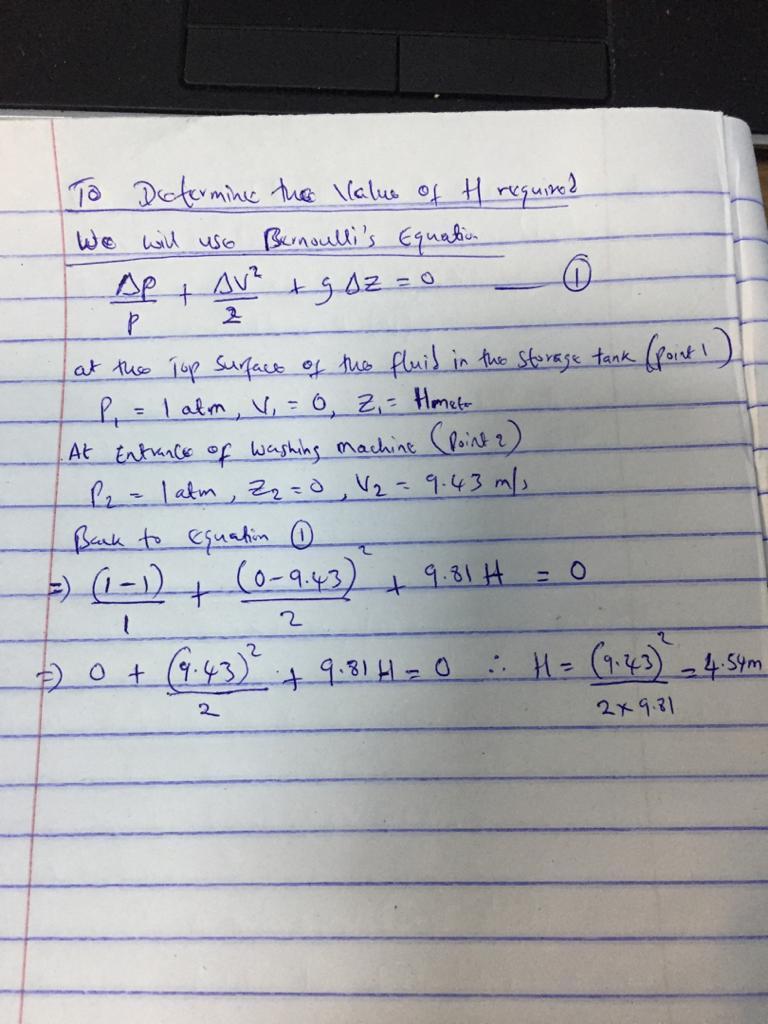 To Determine the Value of H required
We will use Bernoulli's Equation
ΔP/ρ + ΔV²/2 + g ΔZ = 0 — ①
at the Top Surface of the fluid in the storage tank (point 1)
P₁ = 1 atm, V₁ = 0, Z₁ = H meter
At Entrance of Washing machine (Point 2)
P₂ = 1 atm, Z₂ = 0, V₂ = 9.43 m/s
Back to Equation ①
⇒ (1-1)/1 + (0-9.43)²/2 + 9.81 H = 0
⇒ 0 + (9.43)²/2 + 9.81 H = 0 ∴ H = (9.43)²/2×9.81 = 4.54m